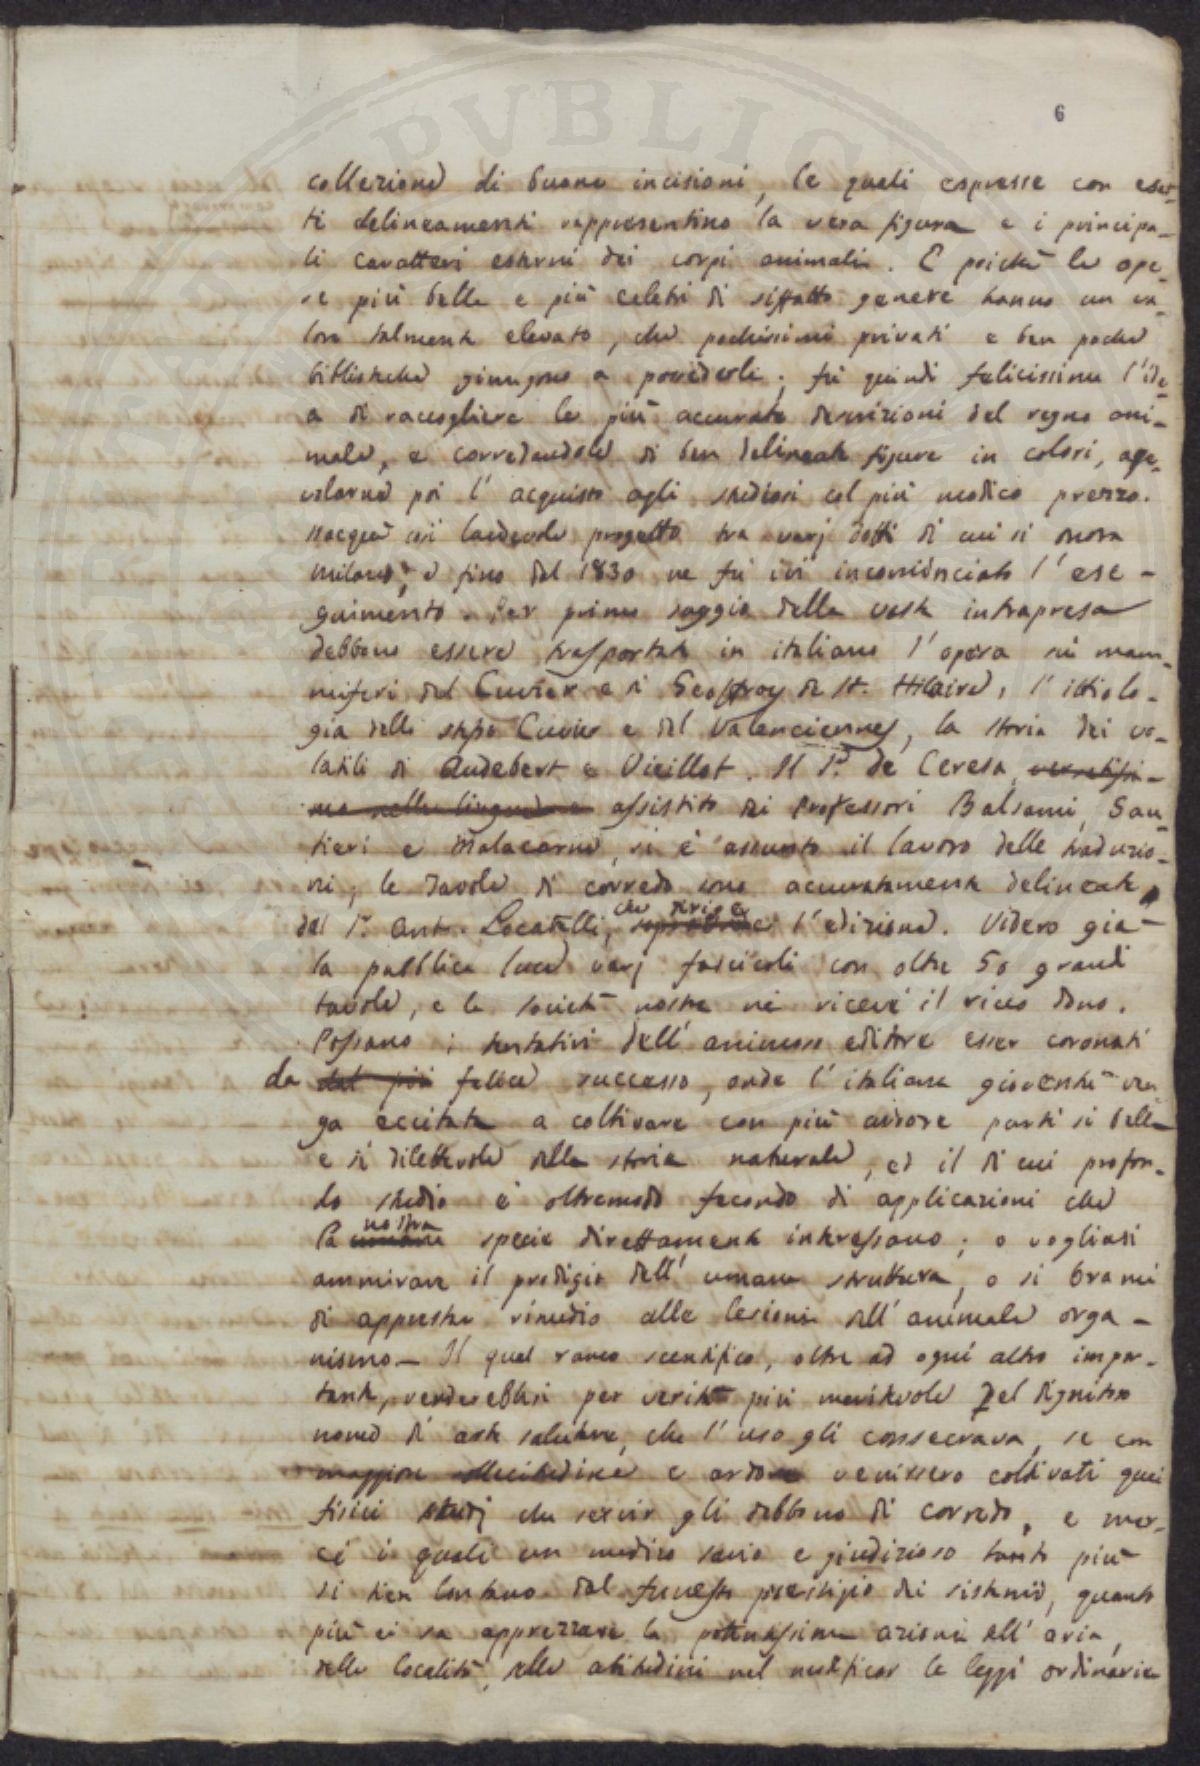 6
collezione di buone incisioni, le quali espresse con esat-
ti delineamenti rappresentino la vera figura e i principa-
li caratteri esterni dei corpi animali. E poichè le ope-
re più belle e più celebri di siffatto genere hanno un va-
lore talmente elevato, che pochissimi privati e ben poche
biblioteche giungono a possederle; fù quindi felicissima l'ide-
a di raccogliere le più accurate descrizioni del regno ani-
male, e corredandole di ben delineate figure in colori, age-
volarne poi l'acquisto agli studiosi col più modico prezzo.
Nacque così laudevole progetto tra varj dotti di cui si onora
Milano; e fino dal 1830 ne fù ivi incominciato l'ese-
guimento. Per primo saggio della vasta intrapresa
debbono essere trasportate in italiano l'opera sui mam-
miferi del Cuvier e di Geoffroy de St. Hilaire, l'ittiolo-
gia dello stesso Cuvier e del Valenciennes, la storia dei vo-
latili di Audebert e Vieillot. Il Sr. de Ceresa versatissi-
mo nelle lingue e assistito dai Professori Balsami, San-
tieri e Malacarne, si è assunto il lavoro delle traduzio-
ni; le Tavole di corredo sono accuratamente delineate
dal Sr. Ant. Locatelli, che dirige l'edizione. Videro già
la pubblica luce varj fascicoli con oltre 50 grandi
tavole, e la società nostra nè riceve il ricco dono.
Possano i tentativi dell'animoso editore esser coronati
da dal più felice successo, onde l'italiana gioventù ven
ga eccitata a coltivare con più ardore parti si belle
e si dilettevole della storia naturale, ed il di cui profon-
do studio è oltremodo fecondo di applicazioni che
la nostra umana specie direttamente interessano; o vogliasi
ammirare il prodigio dell'umana struttura, o si brami
di apprestar rimedio alle lesioni dell'animale orga-
nismo - Il qual ramo scentifico, oltre ad ogni altro impor-
tante, renderebbesi per verità più meritevole del dignitoso
nome di arte salutare, che l'uso gli consecrava, se con
maggiore sollecitudine e ardore venissero coltivati quei
fisici studj che servir gli debbono di corredo, e mer-
cè i quali un medico savio e giudizioso tanto più
si tien lontano dal funesto prestigio dei sistemi, quanto
più ei sa apprezzare la potentissima azione dell'aria,
delle località, delle abitudini nel modificar le leggi ordinarie